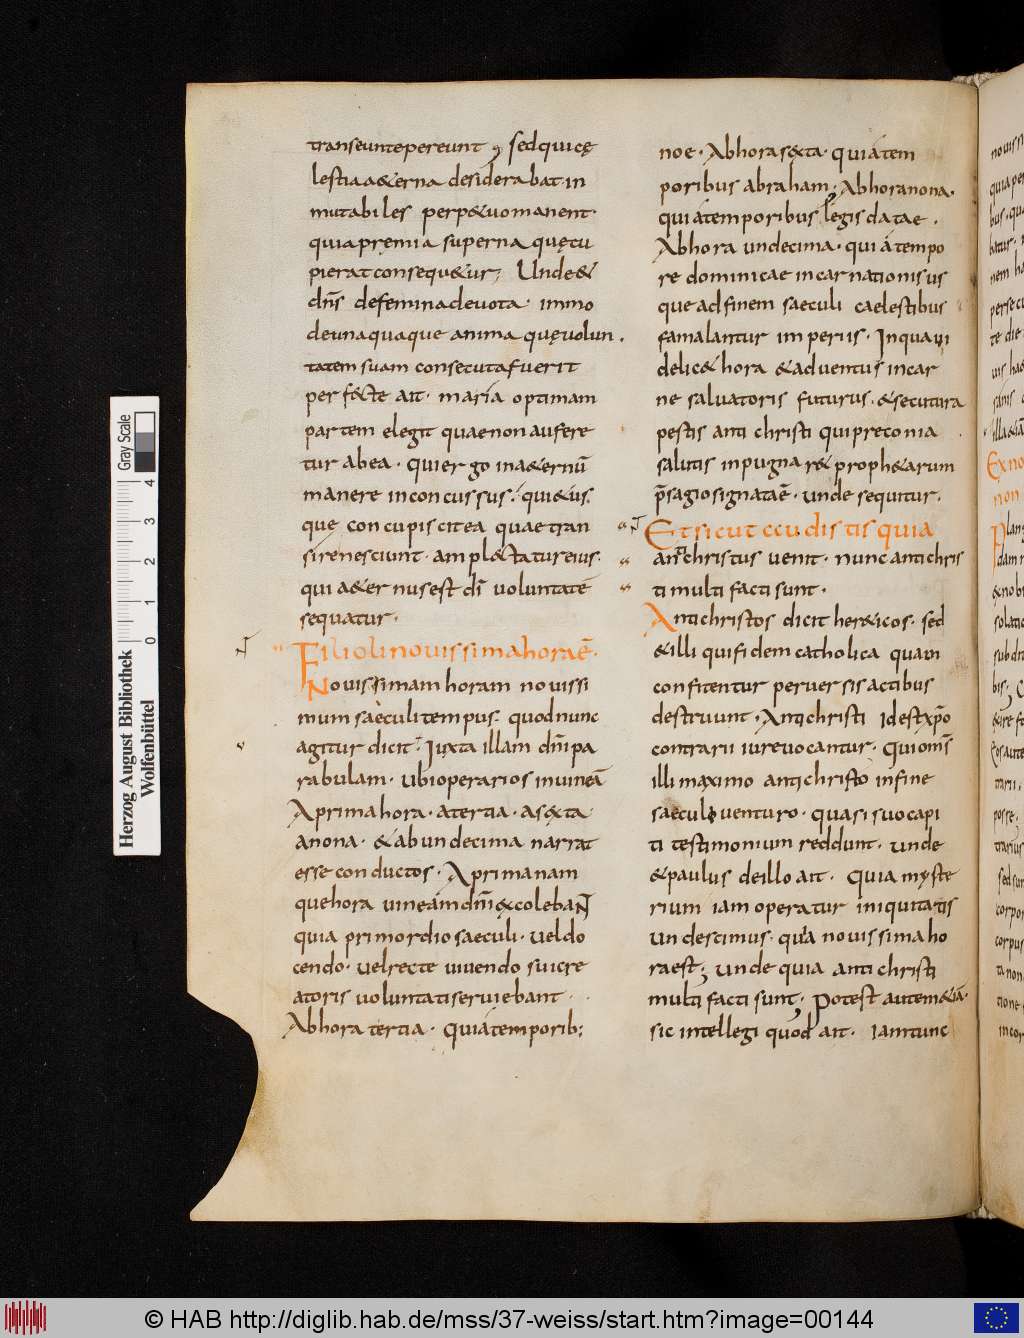 transeunte pereunt, sed qui cę
lestia a&erna desiderabat in
mutabiles perp&uo manent·
quia premia superna quę cu
pierat consequ&ur; Unde &
dn̄s de femina devota· immo
de unaquaque anima quę volun
tatem suam consecuta fuerit
perf&cte ait· maria optimam
partem elegit quae non aufere
tur ab ea· qui ergo in a&ernū
manere inconcussus· qui&us
que concupiscit ea quae tran
sire nesciunt· ampl&ctatur eius·
qui a&ernus est dī voluntatē
sequatur·
Filioli novissima hora ē·
Novissimam horam novissi
mum saeculi tempus· quod nunc
agitur dicit· Iuxta illam dn̄i pa
rabulam· ubi operarios in vineā
A prima hora· a tertia· a s&xta·
a nona· & ab undecima narrat
esse conductos· A prima nam
que hora vineam dn̄i excoleban̄t
quia primordio saeculi· vel do
cendo· vel recte vivendo sui cre
atoris voluntati serviebant·
Ab hora tertia· Qui a temporib;
noe· Ab hora s&xta· qui a tem
poribus abraham; Ab hora nona·
qui a temporibus legis datae·
Ab hora undecima· qui a tempo
re dominicae incarnationis us
que ad finem saeculi caelestibus
famalantur imperiis· In qua vi
delic& hora & adventus in car
ne salvatoris futurus· & secutura
pestis anti christi qui preconia
salutis inpugnar& proph&arum
p̄sagio signata ē· unde sequitur·
Et sicut ccudistis quia
antichristus venit· nunc antichris
ti multi facti sunt·
Antichristos dicit her&icos· sed
& illi qui fidem catholica quam
confitentur perversis actibus
destruunt· Antichristi Id est xp̄o
contrarii iure vocantur· Qui om̄s
illi maximo antichristo in fine
saeculo venturo· quasi suo capi
ti testimonium reddunt· unde
& paulus de illo ait· Quia myste
rium iam operatur iniquitatis
undescimus· quia novissima ho
ra est; unde quia anti christi
multi facti sunt· Potest autem &iā·
sic intellegi quod ait· iam tunc
Gray Scale
0 1 2 3 4
Herzog August Bibliothek
Wolfenbüttel
© HAB http://diglib.hab.de/mss/37-weiss/start.htm?image=00144